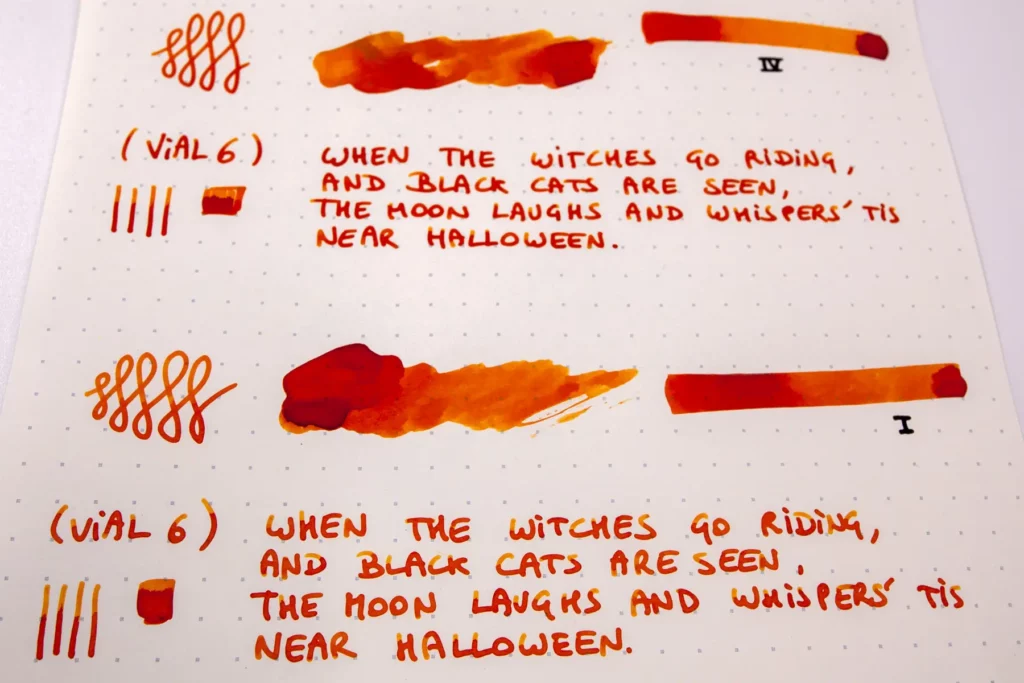 IV
(VIAL 6)
WHEN THE WITCHES GO RIDING,
AND BLACK CATS ARE SEEN,
THE MOON LAUGHS AND WHISPERS' TIS
NEAR HALLOWEEN.
I
(VIAL 6)
WHEN THE WITCHES GO RIDING,
AND BLACK CATS ARE SEEN,
THE MOON LAUGHS AND WHISPERS' TIS
NEAR HALLOWEEN.